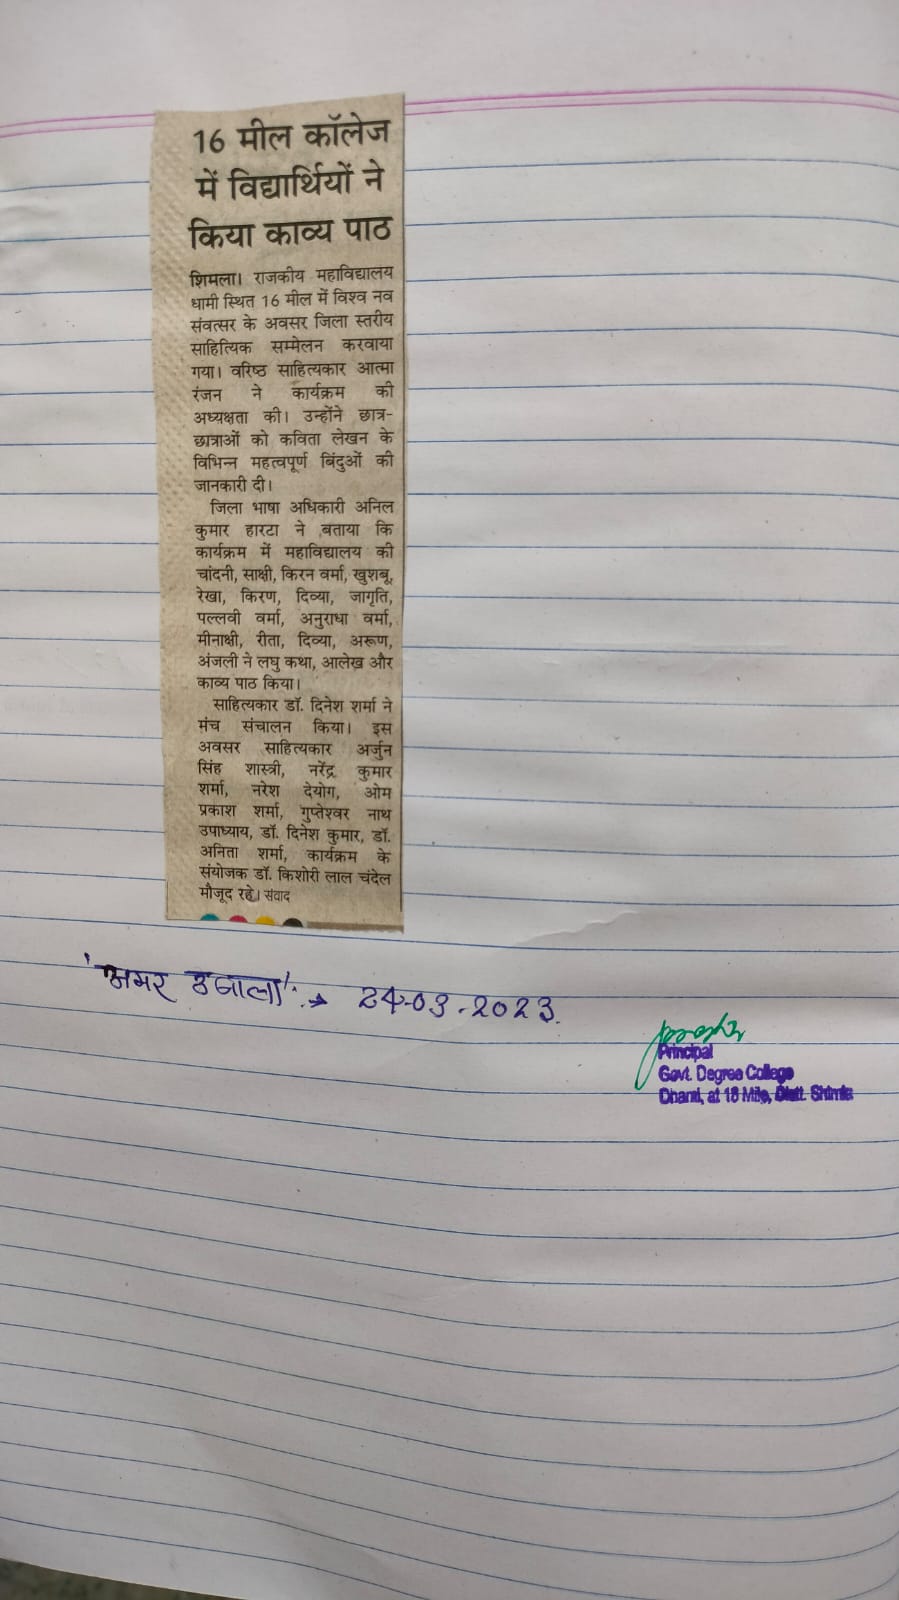 16 मील कॉलेज
में विद्यार्थियों ने
किया काव्य पाठ
शिमला। राजकीय महाविद्यालय
धामी स्थित 16 मील में विश्व नव
संवत्सर के अवसर जिला स्तरीय
साहित्यिक सम्मेलन करवाया
गया। वरिष्ठ साहित्यकार आत्मा
रंजन ने कार्यक्रम की
अध्यक्षता की। उन्होंने छात्र-
छात्राओं को कविता लेखन के
विभिन्न महत्वपूर्ण बिंदुओं की
जानकारी दी।
जिला भाषा अधिकारी अनिल
कुमार हारटा ने बताया कि
कार्यक्रम में महाविद्यालय की
चांदनी, साक्षी, किरन वर्मा, खुशबू,
रेखा, किरण, दिव्या, जागृति,
पल्लवी वर्मा, अनुराधा वर्मा,
मीनाक्षी, रीता, दिव्या, अरूण,
अंजली ने लघु कथा, आलेख और
काव्य पाठ किया।
साहित्यकार डॉ. दिनेश शर्मा ने
मंच संचालन किया। इस
अवसर साहित्यकार अर्जुन
सिंह शास्त्री, नरेंद्र कुमार
शर्मा, नरेश देयोग, ओम
प्रकाश शर्मा, गुप्तेश्वर नाथ
उपाध्याय, डॉ. दिनेश कुमार, डॉ.
अनिता शर्मा, कार्यक्रम के
संयोजक डॉ. किशोरी लाल चंदेल
मौजूद रहे। संवाद
'अमर उजाला' → 24-03-2023.
Principal
Govt. Degree College
Dhami, at 16 Mile, Distt. Shimla